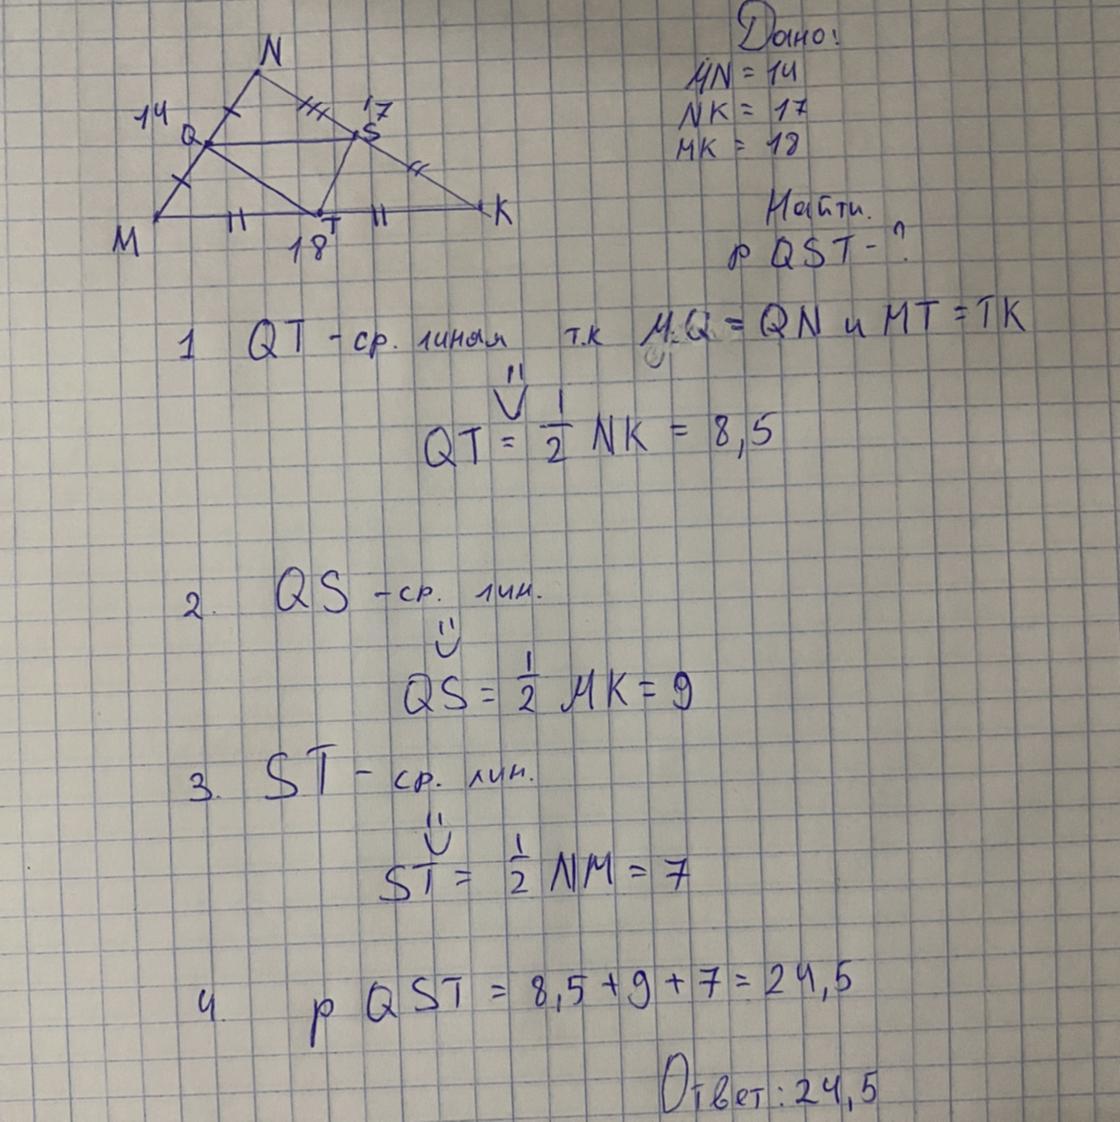 N
14
17
Q
S
M
18
T
K
Дано:
MN = 14
NK = 17
MK = 18
Найти.
p QST - ?
1 QT - ср. линия т.к MQ = QN и MT = TK
QT = 1/2 NK = 8,5
2. QS - ср. лин.
QS = 1/2 MK = 9
3. ST - ср. лин.
ST = 1/2 NM = 7
4. p QST = 8,5 + 9 + 7 = 24,5
Ответ: 24,5